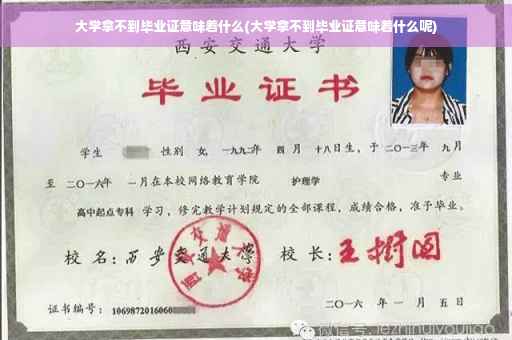 大学拿不到毕业证意味着什么(大学拿不到毕业证意味着什么呢)
西安交通大学
毕业证书
学生 性别 女, 一九九二年 四月 十八日生, 于二〇一三年 九月
至 二〇一六年 一月在本校网络教育学院 护理学 专业
高中起点专科 学习, 修完教学计划规定的全部课程, 成绩合格, 准予毕业。
校名: 西安交通大学 校长: 王树国
西安交通大学
证书编号: 1069872016060
二〇一六年 一月 五日
微信号: jezhihuiyoujiao